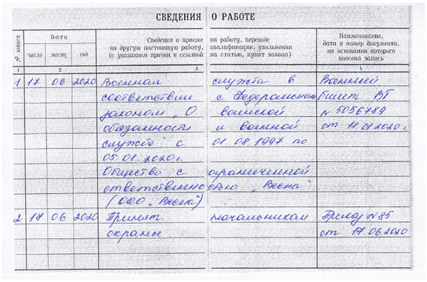 СВЕДЕНИЯ О РАБОТЕ
№ записи
Дата
число месяц год
Сведения о приеме на работу, переводе
на другую постоянную работу, квалификации, увольнении
(с указанием причин и ссылкой на статью, пункт закона)
Наименование,
дата и номер документа,
на основании которого
внесена запись
1 2 3 4
1 17 06 2020 Военная служба в Военный
соответствии с Федеральным билет ВТ
законом „О воинской N 5056789
обязанности и военной от 11.01.2020г.
службе" с 01.08.1997 по
05.01.2020г.
Общество с ограниченной
ответственностью „Весна"
(ООО „Весна")
2 17 06 2020 Принят начальником Приказ N 85
охраны от 17.06.2020